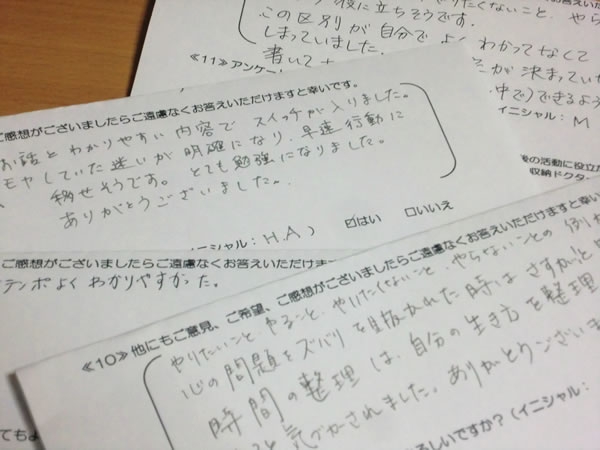 役に立ちそうです。
やりたくないこと、やら
この区別が自分でよくわかってなくて
しまっていました。
書いて
が決まってい
中で)できるよう
イニシャル: M
≪11≫アンケー
ご感想がございましたらご遠慮なくお答えいただけますと幸いです。
お話とわかりやすい内容でスイッチが入りました。
モヤしていた迷いが明確になり、早速行動に
移せそうです。とても勉強になりました。
ありがとうございました。
イニシャル: H.A)
☑はい □いいえ
後の活動に役立
収納ドクタ
ご感想がございましたらご遠慮なくお答えいただけます
テンポよくわかりやすかった。
≪10≫他にもご意見、ご希望、ご感想がございましたらご遠慮なくお答えいただけますと幸い
やりたいこと、やること、やりたくないこと、やらないことの例
心の問題をズバリ見抜かれた時はさすが!と
時間の整理は、自分の生き方を整理
と気づかされました。ありがとうございま
ろしいですか?(イニシャル:
てもよ